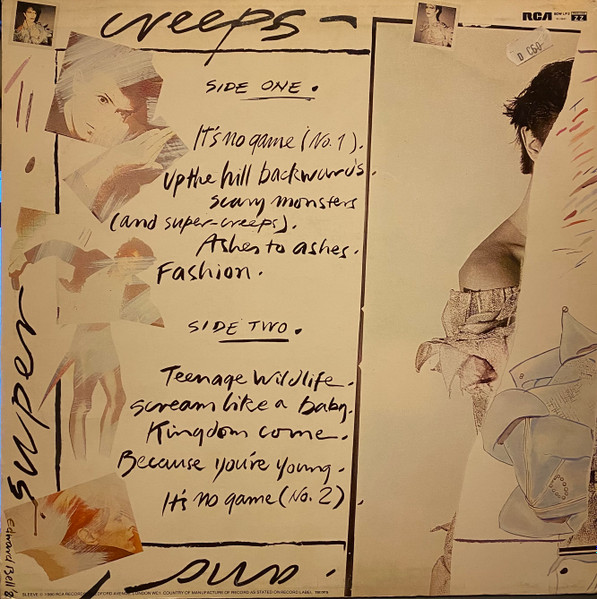 creeps -
RCA
22
D C60
SIDE ONE.
It's no game (No. 1).
Up the hill backwards.
Scary monsters
(and super-creeps).
Ashes to ashes.
Fashion.
SIDE TWO.
Teenage Wildlife.
Scream like a baby.
Kingdom come.
Because you're young.
It's no game (No. 2).
super
and
Edward Bell '8
SLEEVE © 1980 RCA RECORDS, BEDFORD AVENUE, LONDON WC1. COUNTRY OF MANUFACTURE OF RECORD AS STATED ON RECORD LABEL.